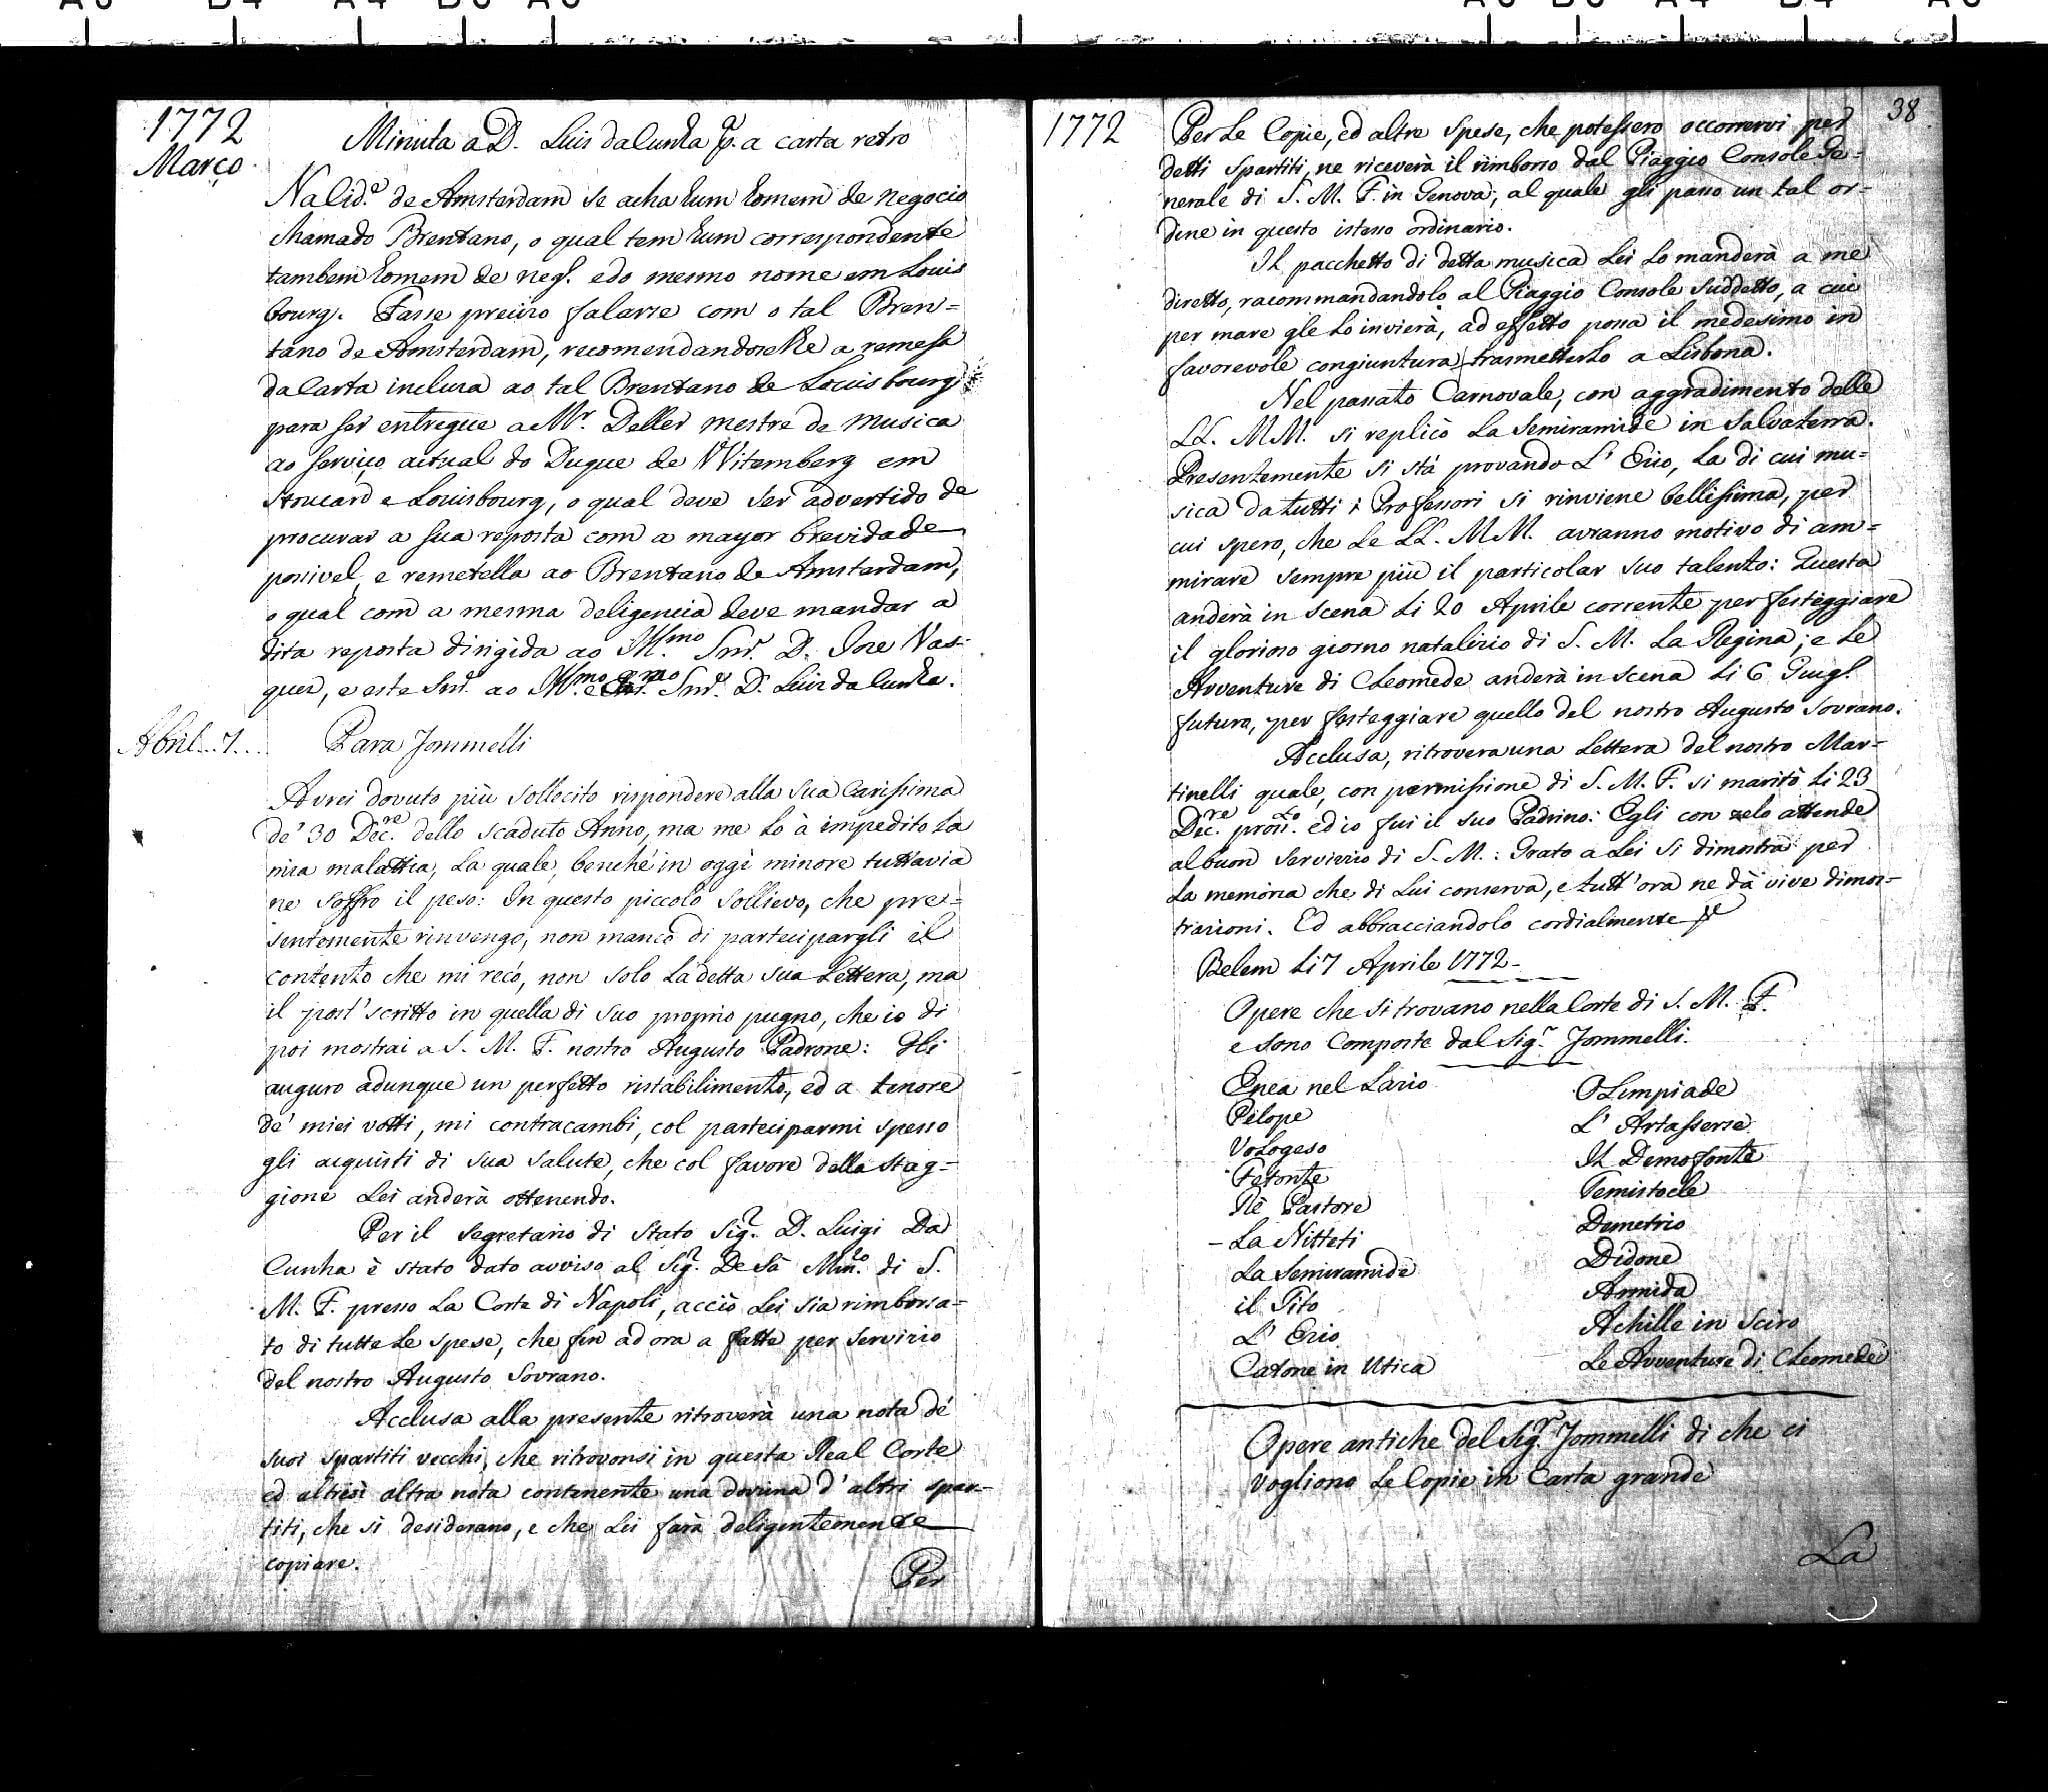 1772
Março.
Minuta a D. Luis da Cunha p.a a carta retro
Na Cid.e de Amsterdam se acha hum homem de negocio
chamado Brentano, o qual tem hum correspondente
tambem homem de neg.o e do mesmo nome em Louis
bourg. Fasse preciso falarse com o tal Bren=
tano de Amsterdam, recomendandoselhe a remessa
da Carta inclusa ao tal Brentano de Louisbourg
para ser entregue a Mr. Deller mestre de musica
ao serviço actual do Duque de Witemberg em
Stucard e Louisbourg, o qual deve ser advertido de
procurar a sua reposta com a mayor brevidade
possivel, e remetella ao Brentano de Amsterdam,
o qual com a mesma deligencia deve mandar a
dita reposta dirigida ao Ill.mo Snr. D. Jose Vas-
quez, e este Snr. ao Ill.mo e Ex.mo Snr. D. Luiz da Cunha.
Abril..7...
Para Jommelli
Avrei dovuto più sollecito rispondere alla sua Carissima
de' 30 Dec.re dello scaduto Anno, ma me lo à impedito la
mia malattia, la quale, benché in oggi minore tuttavia
ne soffro il peso: In questo piccolo sollievo, che pre=
sentemente rinvengo, non manco di partecipargli il
contento che mi recò, non solo la detta sua Lettera, ma
il post' scritto in quella di suo proprio pugno, che io di
poi mostrai a S. M. F. nostro Augusto Padrone: Gli
auguro adunque un perfetto ristabilimento, ed a tenore
de' miei votti, mi contracambi, col parteciparmi spesso
gli acquisti di sua salute, che col favore della stag=
gione Lei anderà ottenendo.
Per il Segretario di Stato Sig.r D. Luigi Da
Cunha è stato dato avviso al Sig.r De Sà Min.ro di S.
M. F. presso la Corte di Napoli, acciò Lei sia rimborsa=
to di tutte le spese, che fin ad ora a fatte per servizio
del nostro Augusto Sovrano.
Acclusa alla presente ritroverà una nota dé
suoi spartiti vecchi, che ritrovonsi in questa Real Corte
ed altresì altra nota continente una dozzina d' altri spar=
titi, che si desiderano, e che Lei farà deligentemente
copiare.
Per
1772
38
Per Le Copie, ed altre spese, che potessero occorrervi per
detti Spartiti, ne riceverà il rimborso dal Piaggio Console Ge=
nerale di S. M. F. in Genova, al quale gli passo un tal or=
dine in questo istesso ordinario.
Il pacchetto di detta musica Lei Lo manderà a me
diretto, racommandandolo al Piaggio Console Suddetto, a cui
per mare gle lo invierà, ad effetto possa il medesimo in
favorevole congiuntura trasmetterlo a Lisbona.
Nel passato Carnovale, con aggradimento delle
LL. MM. si replicò La Semiramide in Salvaterra.
Presentemente si stà provando L' Ezio, La di cui mu=
sica da tutti i Professori si rinviene bellissima, per
cui spero, che Le LL. MM. avranno motivo di am=
mirare sempre più il particolar suo talento: Questa
anderà in scena Li 20 Aprile corrente per festeggiare
il glorioso giorno natalizio di S. M. La Regina; e Le
Avventure di Cleomede anderà in scena Li 6 Giug.o
futuro, per festeggiare quello del nostro Augusto Sovrano.
Acclusa, ritrovera una Lettera del nostro Mar=
tinelli quale, con permissione di S. M. F. si maritò Li 23
Dec.re pross.o ed io fui il suo Padrino: Egli con zelo attende
al buon Servizio di S. M.: Grato a Lei si dimostra per
La memoria che di Lui conserva, e tutt' ora ne dà vive dimos=
trazioni. Ed abbracciandolo cordialmente
Belem Li 7 Aprile 1772_
Opere che si trovano nella Corte di S. M. F.
e sono Composte dal Sig.r Jommelli.
Enea nel Lazio
Pelope
Vologeso
Fetonte
Rè Pastore
- La Nitteti
La Semiramide
il Tito
L' Ezio
Catone in Utica
Olimpiade
L' Artasserse
Il Demofonte
Temistocle
Demetrio
Didone
Armida
Achille in Sciro
Le Avventure di Cleomede
Opere antiche del Sig.r Jommelli di che ci
vogliono Le Copie in Carta grande
La